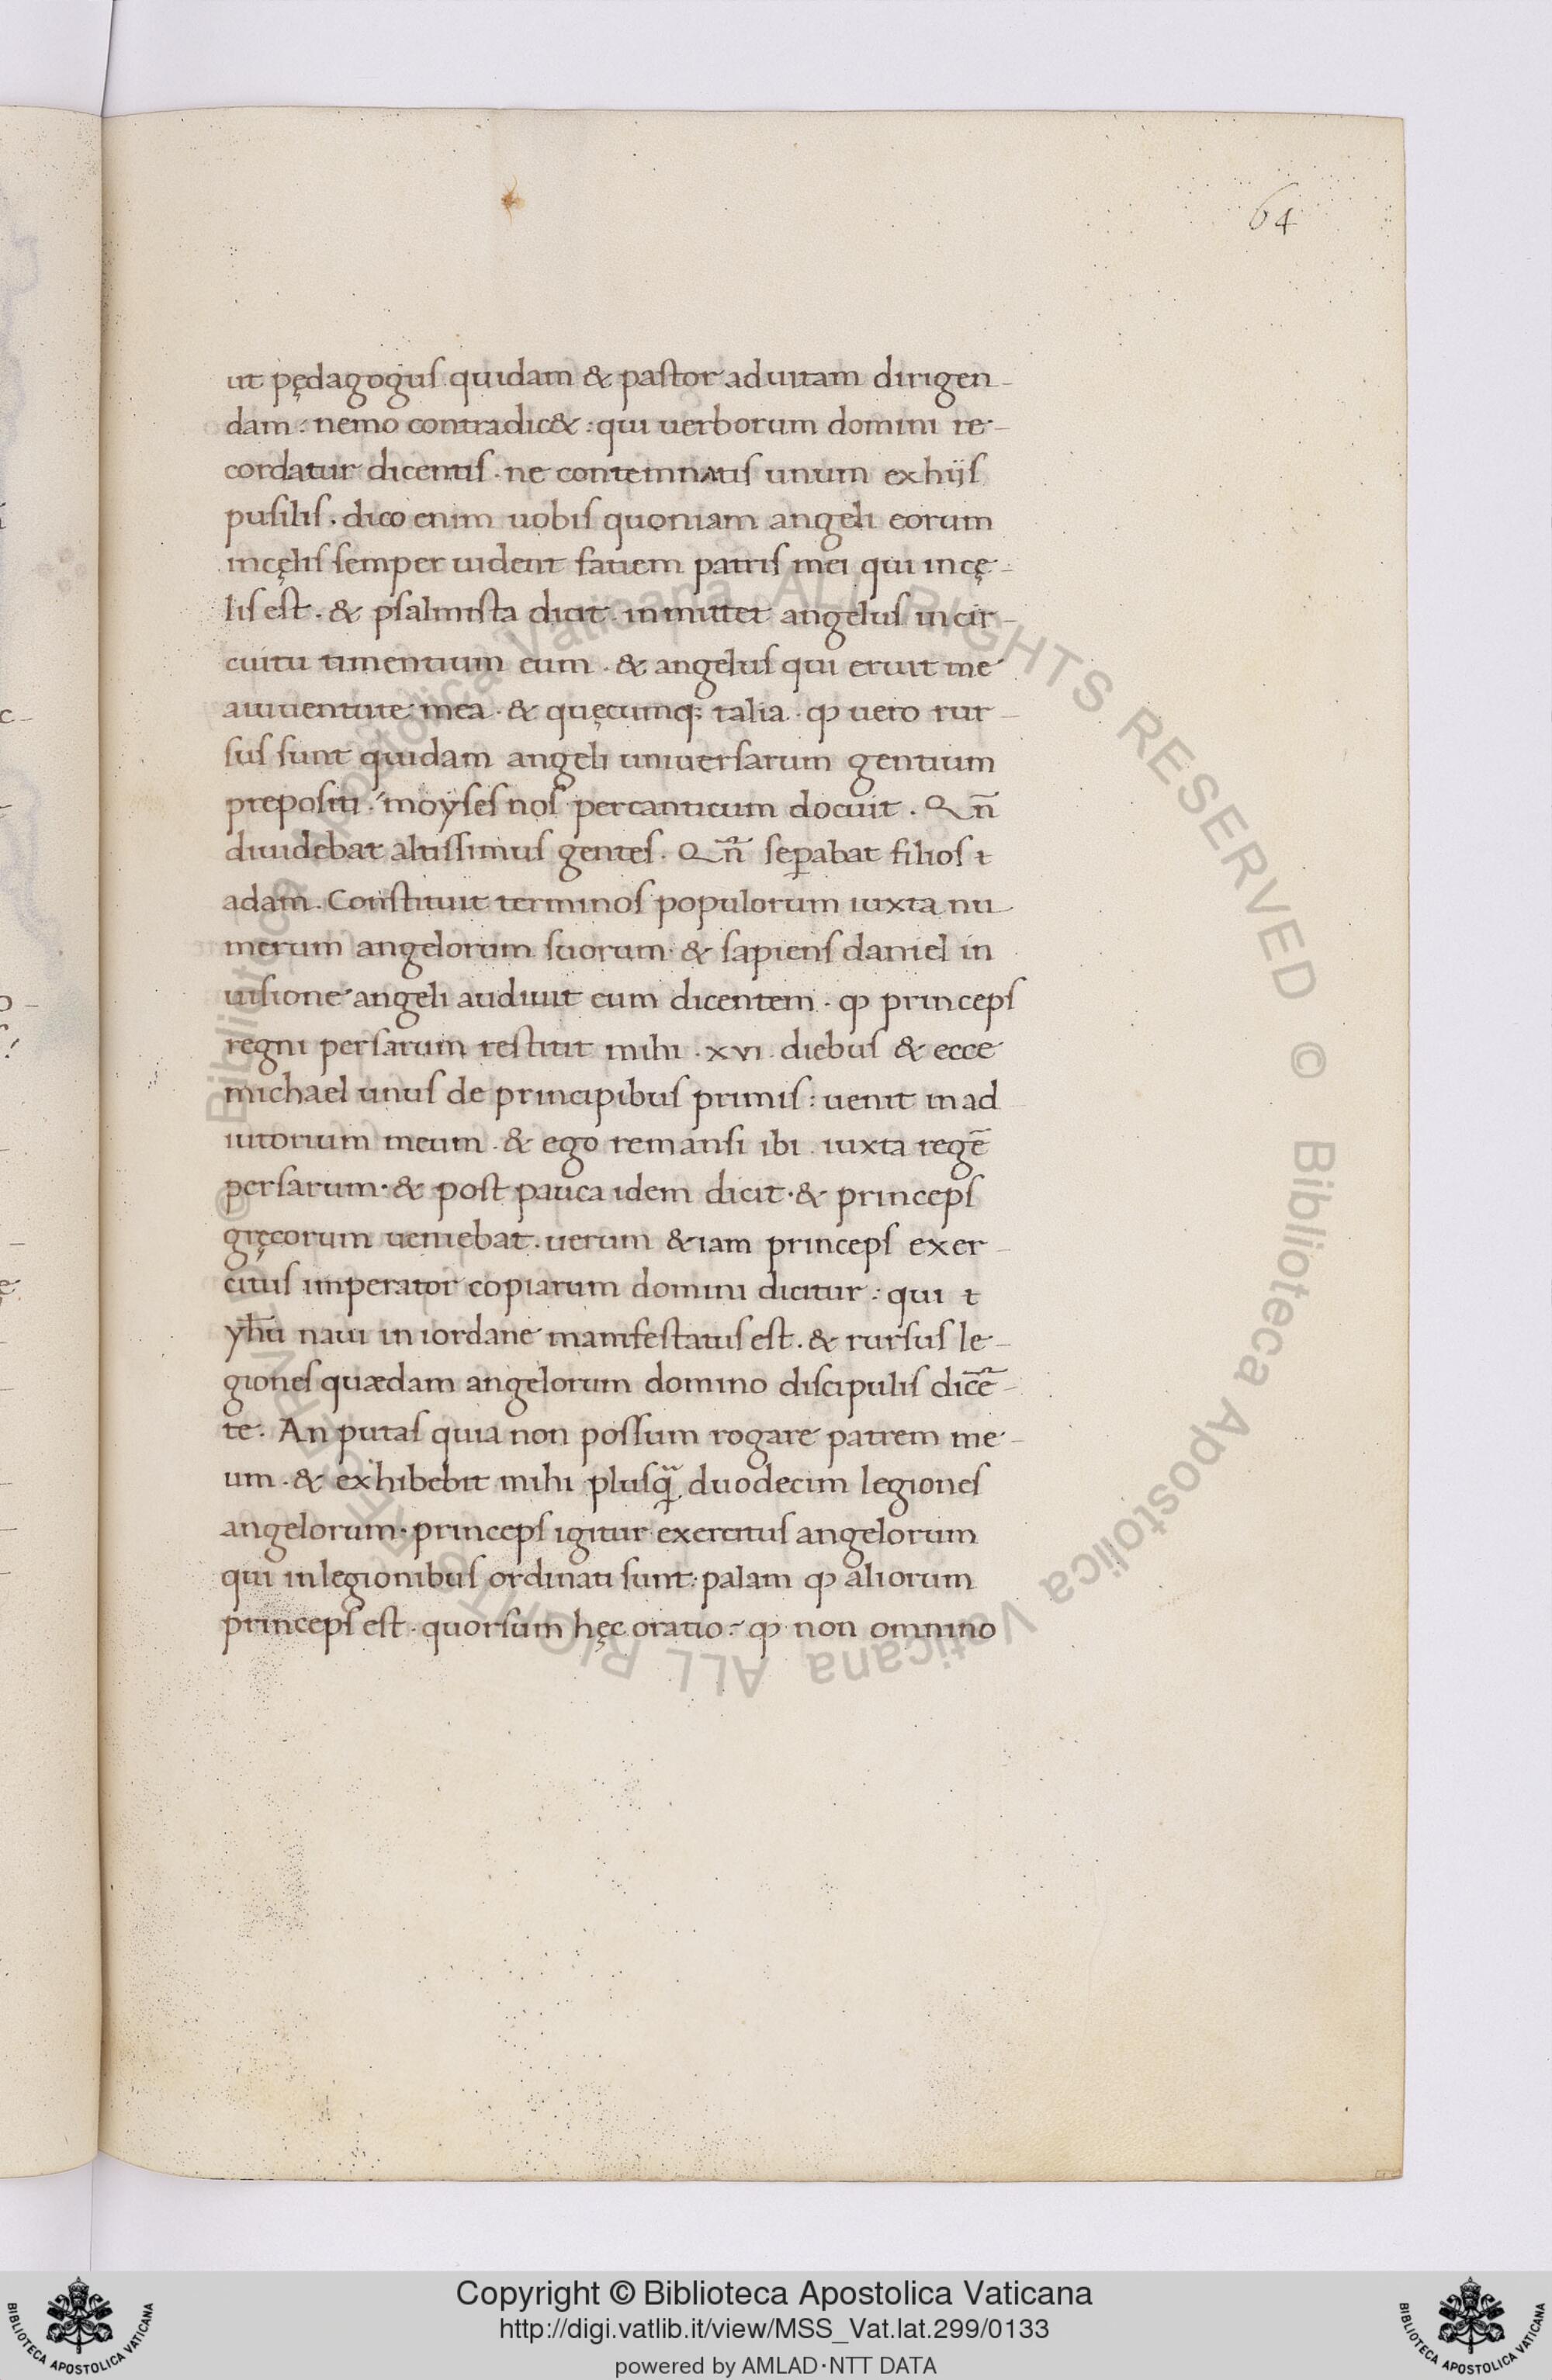 64
ut pędagogus quidam & pastor ad uitam dirigen-
dam: nemo contradic&: qui uerborum domini re-
cordatur dicentis. ne contemnatis unum ex hijs
pusilis. dico enim uobis quoniam angeli eorum
in cęlis semper uident faciem patris mei qui in cę-
lis est. & psalmista dicit. inmittet angelus in cir-
cuitu timentium eum. & angelus qui eruit me
a iuuentute mea. & quęcumq; talia. ꝙ uero rur-
sus sunt quidam angeli uniuersarum gentium
prepositi. moyses nos per canticum docuit. Qn̄
diuidebat altissimus gentes. Qn̄ seꝑabat filios t
adam. Constituit terminos populorum iuxta nu-
merum angelorum suorum. & sapiens daniel in
uisione angeli audiuit eum dicentem. ꝙ princeps
regni persarum restitit mihi .xvi. diebus & ecce
michael unus de principibus primis: uenit in ad
iutorium meum. & ego remansi ibi. iuxta regē
persarum. & post pauca idem dicit. & princeps
gręcorum ueniebat. uerum &iam princeps exer-
citus imperator copiarum domini dicitur: qui t
yhū naui in iordane manifestatus est. & rursus le-
giones quædam angelorum domino discipulis dicē-
te. An putas quia non possum rogare patrem me-
um. & exhibebit mihi plusq̄ duodecim legiones
angelorum. princeps igitur exercitus angelorum
qui in legionibus ordinati sunt: palam ꝙ aliorum
princeps est. quorsum hęc oratio: ꝙ non omnino
© Biblioteca Apostolica Vaticana ALL RIGHTS RESERVED
© Biblioteca Apostolica Vaticana ALL RIGHTS RESERVED
Copyright © Biblioteca Apostolica Vaticana
http://digi.vatlib.it/view/MSS_Vat.lat.299/0133
powered by AMLAD·NTT DATA
BIBLIOTECA APOSTOLICA VATICANA
BIBLIOTECA APOSTOLICA VATICANA